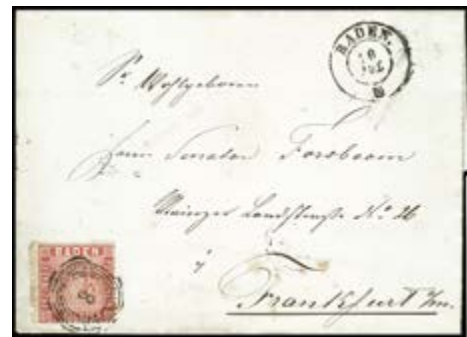 BADEN.
Sr. Wohlgeboren
Herrn Senator Forsboom
Mainzer Landstraße No 26
Frankfurt
BADEN
8